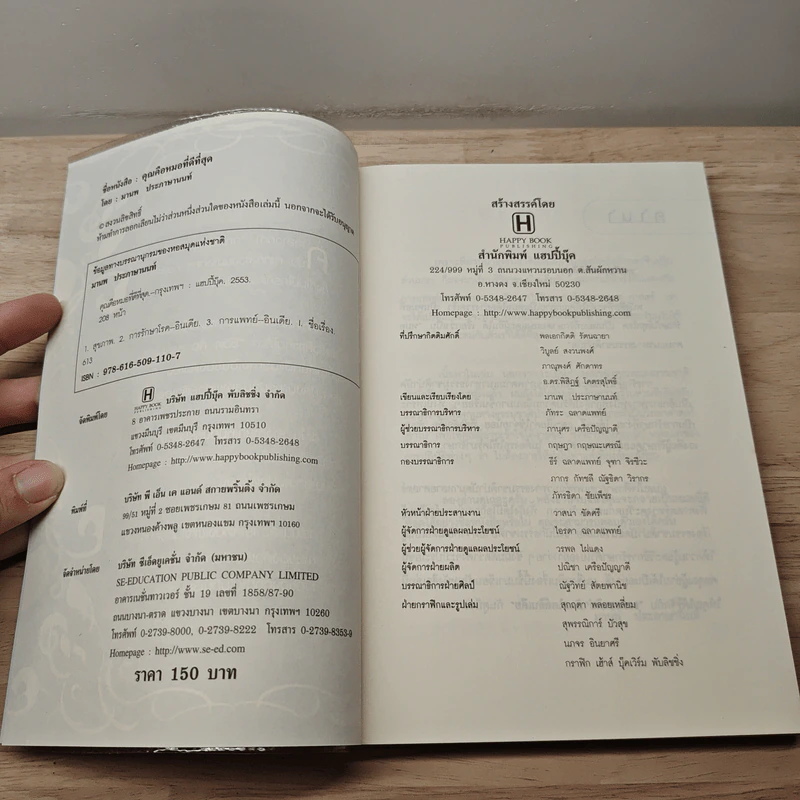 ชื่อหนังสือ : คุณคือหมอที่ดีที่สุด
โดย : มานพ ประภาษานนท์
© สงวนลิขสิทธิ์
ห้ามทำการลอกเลียนไม่ว่าส่วนหนึ่งส่วนใดของหนังสือเล่มนี้ นอกจากจะได้รับอนุญาต
ข้อมูลทางบรรณานุกรมของหอสมุดแห่งชาติ
มานพ ประภาษานนท์
คุณคือหมอที่ดีที่สุด.--กรุงเทพฯ : แฮปปี้บุ๊ค, 2553.
208 หน้า
1. สุขภาพ. 2. การรักษาโรค--อินเดีย. 3. การแพทย์--อินเดีย. I. ชื่อเรื่อง.
613
ISBN : 978-616-509-110-7
จัดพิมพ์โดย
H
HAPPY BOOK
PUBLISHING
บริษัท แฮปปี้บุ๊ค พับลิชชิ่ง จำกัด
8 อาคารเพชรประกาย ถนนรามอินทรา
แขวงมีนบุรี เขตมีนบุรี กรุงเทพฯ 10510
โทรศัพท์ 0-5348-2647 โทรสาร 0-5348-2648
Homepage : http://www.happybookpublishing.com
พิมพ์ที่
บริษัท พี เอ็น เค แอนด์ สกายพริ้นติ้ง จำกัด
99/51 หมู่ที่ 2 ซอยเพชรเกษม 81 ถนนเพชรเกษม
แขวงหนองค้างพลู เขตหนองแขม กรุงเทพฯ 10160
จัดจำหน่ายโดย
บริษัท ซีเอ็ดยูเคชั่น จำกัด (มหาชน)
SE-EDUCATION PUBLIC COMPANY LIMITED
อาคารเนชั่นทาวเวอร์ ชั้น 19 เลขที่ 1858/87-90
ถนนบางนา-ตราด แขวงบางนา เขตบางนา กรุงเทพฯ 10260
โทรศัพท์ 0-2739-8000, 0-2739-8222 โทรสาร 0-2739-8353-9
Homepage : http://www.se-ed.com
ราคา 150 บาท
สร้างสรรค์โดย
H
HAPPY BOOK
PUBLISHING
สำนักพิมพ์ แฮปปี้บุ๊ค
224/999 หมู่ที่ 3 ถนนวงแหวนรอบนอก ต.สันผักหวาน
อ.หางดง จ.เชียงใหม่ 50230
โทรศัพท์ 0-5348-2647 โทรสาร 0-5348-2648
Homepage : http://www.happybookpublishing.com
ที่ปรึกษากิตติมศักดิ์ พลเอกกิตติ รัตนฉายา
วิบูลย์ สงวนพงศ์
ภาณุพงศ์ ศักดาทร
อ.ดร.พิสิฏฐ์ โคตรสุโพธิ์
เขียนและเรียบเรียงโดย มานพ ประภาษานนท์
บรรณาธิการบริหาร ภัทระ ฉลาดแพทย์
ผู้ช่วยบรรณาธิการบริหาร ภานุศร เครือปัญญาดี
บรรณาธิการ กฤษฎา กฤษณะเศรณี
กองบรรณาธิการ ธีร์ ฉลาดแพทย์ จุฑา จิรชีวะ
ภากร กัทชลี ณัฐธิดา วิรากร
ภัทรธิดา ชัยเพ็ชร
หัวหน้าฝ่ายประสานงาน วาสนา ขัดศรี
ผู้จัดการฝ่ายดูแลผลประโยชน์ ไอรดา ฉลาดแพทย์
ผู้ช่วยผู้จัดการฝ่ายดูแลผลประโยชน์ วรพล ไฝแดง
ผู้จัดการฝ่ายผลิต ปณิชา เครือปัญญาดี
บรรณาธิการฝ่ายศิลป์ ณัฐวิทย์ สัตยพานิช
ฝ่ายกราฟิกและรูปเล่ม สุกฤตา พลอยเหลี่ยม
สุพรรณิการ์ บัวสุข
นภจร อินยาศรี
กราฟิก เฮ้าส์ บุ๊คเวิร์ม พับลิชชิ่ง